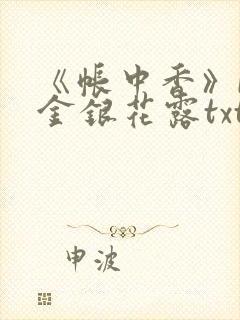 《帐中香》
金银花露txt
申波